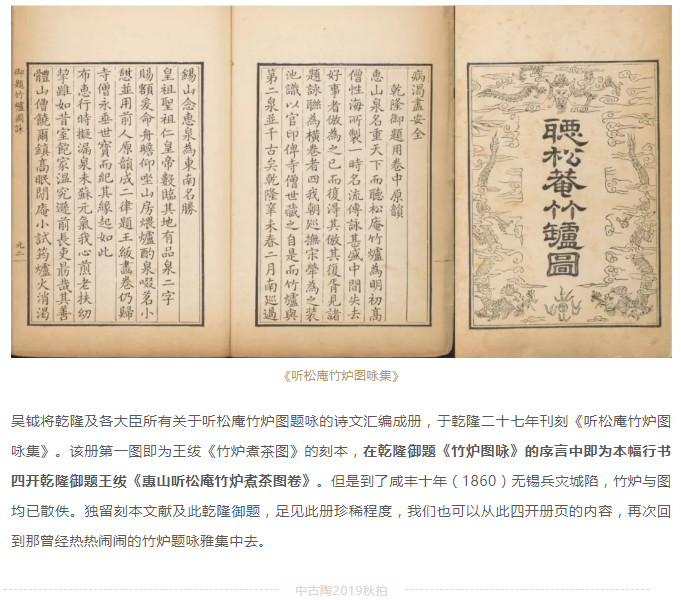 聽松菴竹罏圖
病渴盡安全
乾隆御題用卷中原韻
惠山泉名重天下而聽松庵竹爐為明初高
僧性海所製一時名流傳詠甚盛中間失去
好事者倣為之已而復得其倣其復胥見諸
題詠聯為橫卷者四我朝巡撫宋犖為之裝
池識以官印俾寺僧世藏之自是而竹爐與
第二泉並千古矣乾隆辛未春二月南巡過
錫山念惠泉為東南名勝
皇祖聖祖仁皇帝數臨其地有品泉二字
賜額爰命舟瞻仰坐山房煨爐酌泉啜茗小
憇並用前人原韻成二律題王紱畫卷仍歸
寺僧永垂世寶而紀其緣起如此
布惠行時擬漏泉未蘇元氣我心煎老扶幼
挈雖如昔室飽家溫究遜前長更勗哉其善
體山僧饒爾鎮高眠閉庵小試筠爐火消渴
御題竹爐圖詠
《听松庵竹炉图咏集》
吴钺将乾隆及各大臣所有关于听松庵竹炉图题咏的诗文汇编成册，于乾隆二十七年刊刻《听松庵竹炉图
咏集》。该册第一图即为王绂《竹炉煮茶图》的刻本，在乾隆御题《竹炉图咏》的序言中即为本幅行书
四开乾隆御题王绂《惠山听松庵竹炉煮茶图卷》。但是到了咸丰十年（1860）无锡兵灾城陷，竹炉与图
均已散佚。独留刻本文献及此乾隆御题，足见此册珍稀程度，我们也可以从此四开册页的内容，再次回
到那曾经热热闹闹的竹炉题咏雅集中去。
中古陶2019秋拍